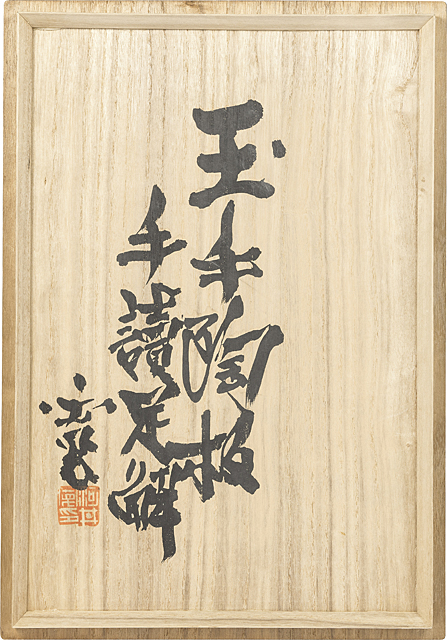 玉手陶板
手讀足解
寛